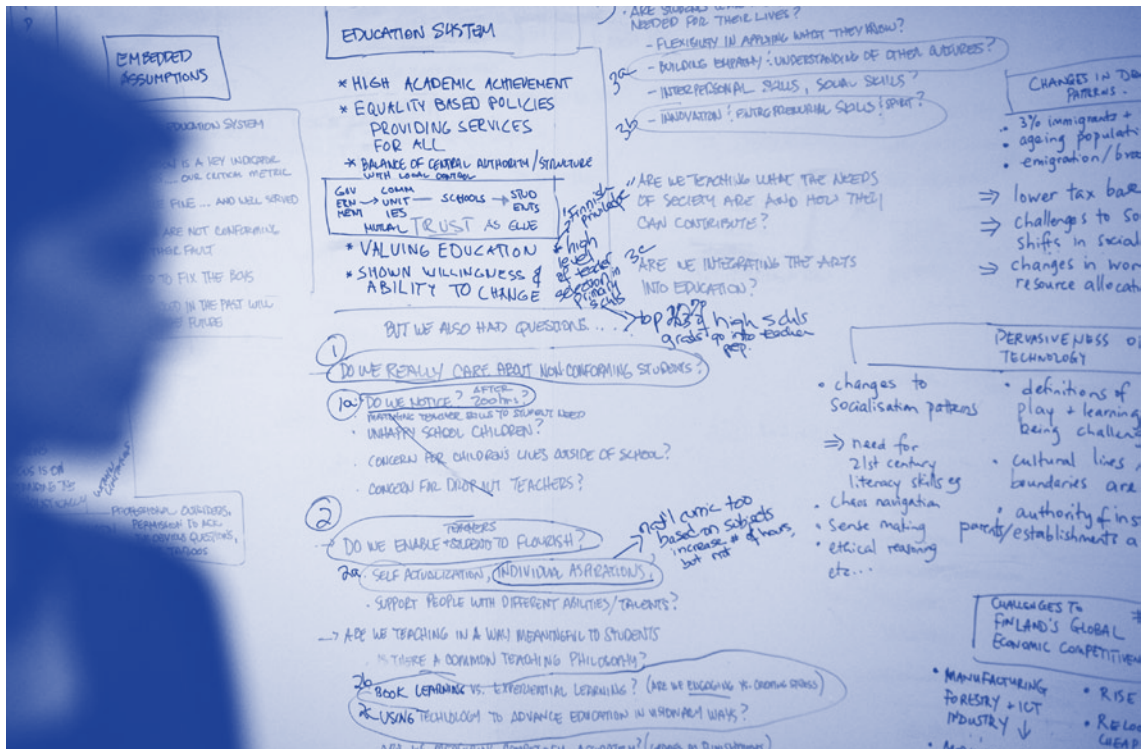 EMBEDDED
ASSUMPTIONS
EDUCATION SYSTEM
IS A KEY INDICATOR
OUR CRITICAL METRIC
FINE ... AND WELL SERVED
ARE NOT CONFORMING
FAULT
TO FIX THE BOYS
IN THE PAST WILL
FUTURE
PERMISSION TO ASK
OBVIOUS QUESTIONS,
EDUCATION SYSTEM
* HIGH ACADEMIC ACHIEVEMENT
* EQUALITY BASED POLICIES
PROVIDING SERVICES
FOR ALL
* BALANCE OF CENTRAL AUTHORITY/STRUCTURE
WITH LOCAL CONTROL
GOV
ERN
MENT
→
COMM
UNIT
IES
— SCHOOLS →
STUD
ENTS
MUTUAL TRUST AS GLUE
* VALUING EDUCATION
* SHOWN WILLINGNESS &
ABILITY TO CHANGE
Finnish
privilege
* high
level
of teacher
selection in
primary
schls
top 20%
of high schls
grads go into teacher
prep.
BUT WE ALSO HAD QUESTIONS ....
1
DO WE REALLY CARE ABOUT NON-CONFORMING STUDENTS?
1a
DO WE NOTICE? AFTER
200 HRS?
· MATCHING TEACHER SKILLS TO STUDENT NEED
· UNHAPPY SCHOOL CHILDREN?
· CONCERN FOR CHILDREN'S LIVES OUTSIDE OF SCHOOL?
· CONCERN FOR TEACHERS?
2
TEACHERS
→ DO WE ENABLE + STUDENTS TO FLOURISH?
2a. SELF ACTUALIZATION, INDIVIDUAL ASPIRATIONS.
nat'l curric too
based on subjects
increase # of hours,
but not
· SUPPORT PEOPLE WITH DIFFERENT ABILITIES/TALENTS?
→ ARE WE TEACHING IN A WAY MEANINGFUL TO STUDENTS
IS THERE A COMMON TEACHING PHILOSOPHY?
2b BOOK LEARNING VS. EXPERIENTIAL LEARNING? (ARE WE ENGAGING VS. CREATING STRESS)
2c USING TECHNOLOGY TO ADVANCE EDUCATION IN VISIONARY WAYS?
NEEDED FOR THEIR LIVES?
- FLEXIBILITY IN APPLYING WHAT THEY KNOW?
3a - BUILDING EMPATHY: UNDERSTANDING OF OTHER CULTURES?
- INTERPERSONAL SKILLS, SOCIAL SKILLS?
3b - INNOVATION: ENTREPRENEURIAL SKILLS: SPIRIT?
ARE WE TEACHING WHAT THE NEEDS
OF SOCIETY ARE AND HOW THEY
CAN CONTRIBUTE?
3c
ARE WE INTEGRATING THE ARTS
INTO EDUCATION?
CHANGES IN
PATTERNS.
• 3% immigrants +
• ageing populat
• emigration/
⇒ lower tax bas
⇒ challenges to So
shifts in social
⇒ changes in wor
resource allocat
PERVASIVENESS OF
TECHNOLOGY
• changes to
socialisation patterns
⇒ need for
21st century
literacy skills eg
• Chaos navigation
• Sense making
• ethical reasoning
etc...
• definitions of
play + learning
being challen
• cultural lines
boundaries are
• authority of ins
parents/establishments a
CHALLENGES TO
FINLAND'S GLOBAL
ECONOMIC COMPETITIVENE
• MANUFACTURING
FORESTRY + ICT
INDUSTRY ↓
• RISE
• RELO
CHEAP